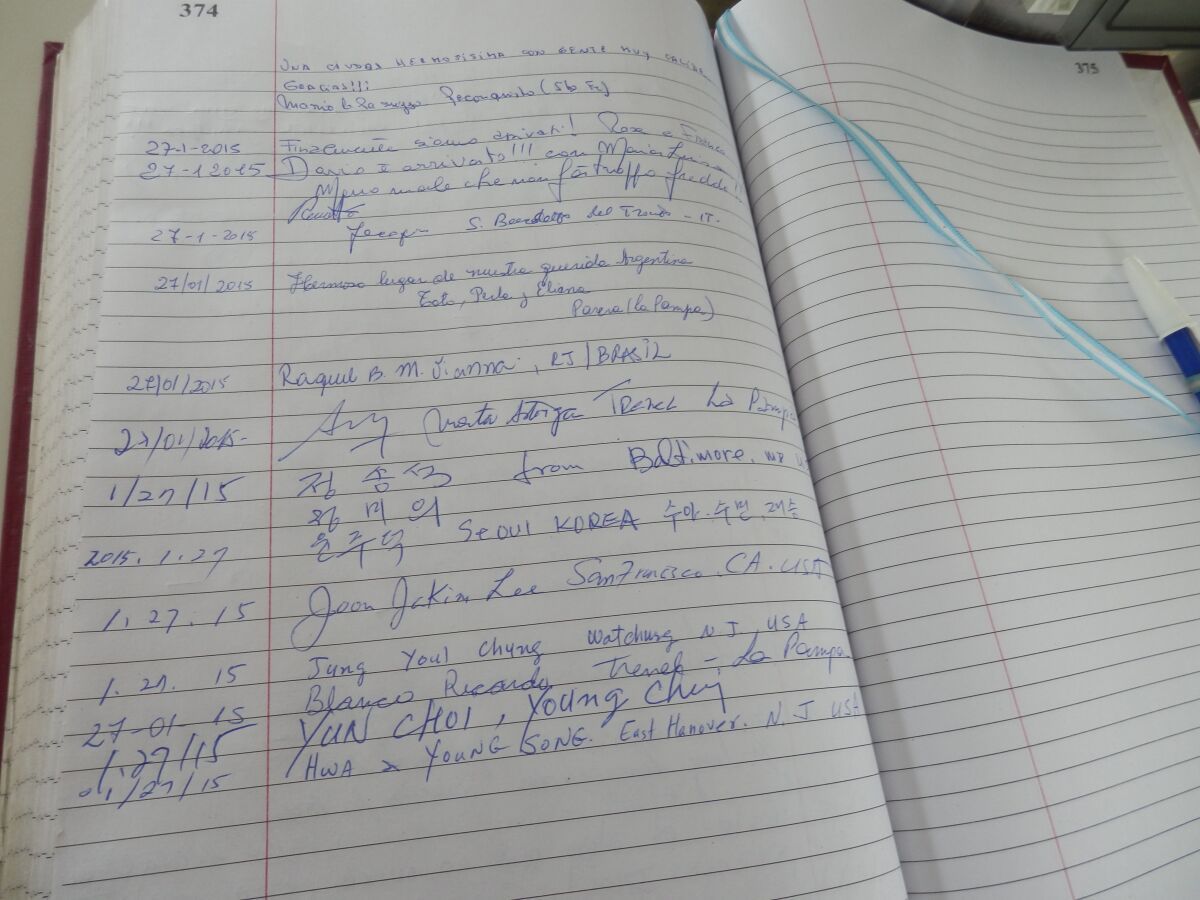 374
UNA CIUDAD HERMOSISIMA CON GENTE MUY CALIDA
GRACIAS!!!
Mario Reconquista (Sta Fe)
27-1-2015 Finalmente siamo arrivati! Rosa e Franco
27-1 2015 Dario è arrivato!!! con Maria
Meno male che non fa troppo freddo!!
27-1-2015 S. Benedetto del Tronto - IT.
27/01/2015 Hermoso lugar de nuestra querida Argentina
Toto, Perla y Eliana
Parera (La Pampa)
27/01/2015 Raquel B. M. Vianna, RJ/BRASIL
27/01/2015- Marta Trenel La Pampa
1/27/15 정 송 from Baltimore. MD
황 미 의
2015. 1. 27 Seoul KOREA 수아. 수빈.
1. 27. 15 Joon Lee San Francisco. CA. USA
1. 27. 15 Jung Youl Chung Watchung NJ USA
27-01-15 Blanco Ricardo Trenel - La Pampa
1.27/15 YUN CHOI, Young Choi
01/27/15 HWA YOUNG SONG. East Hanover. NJ USA
375